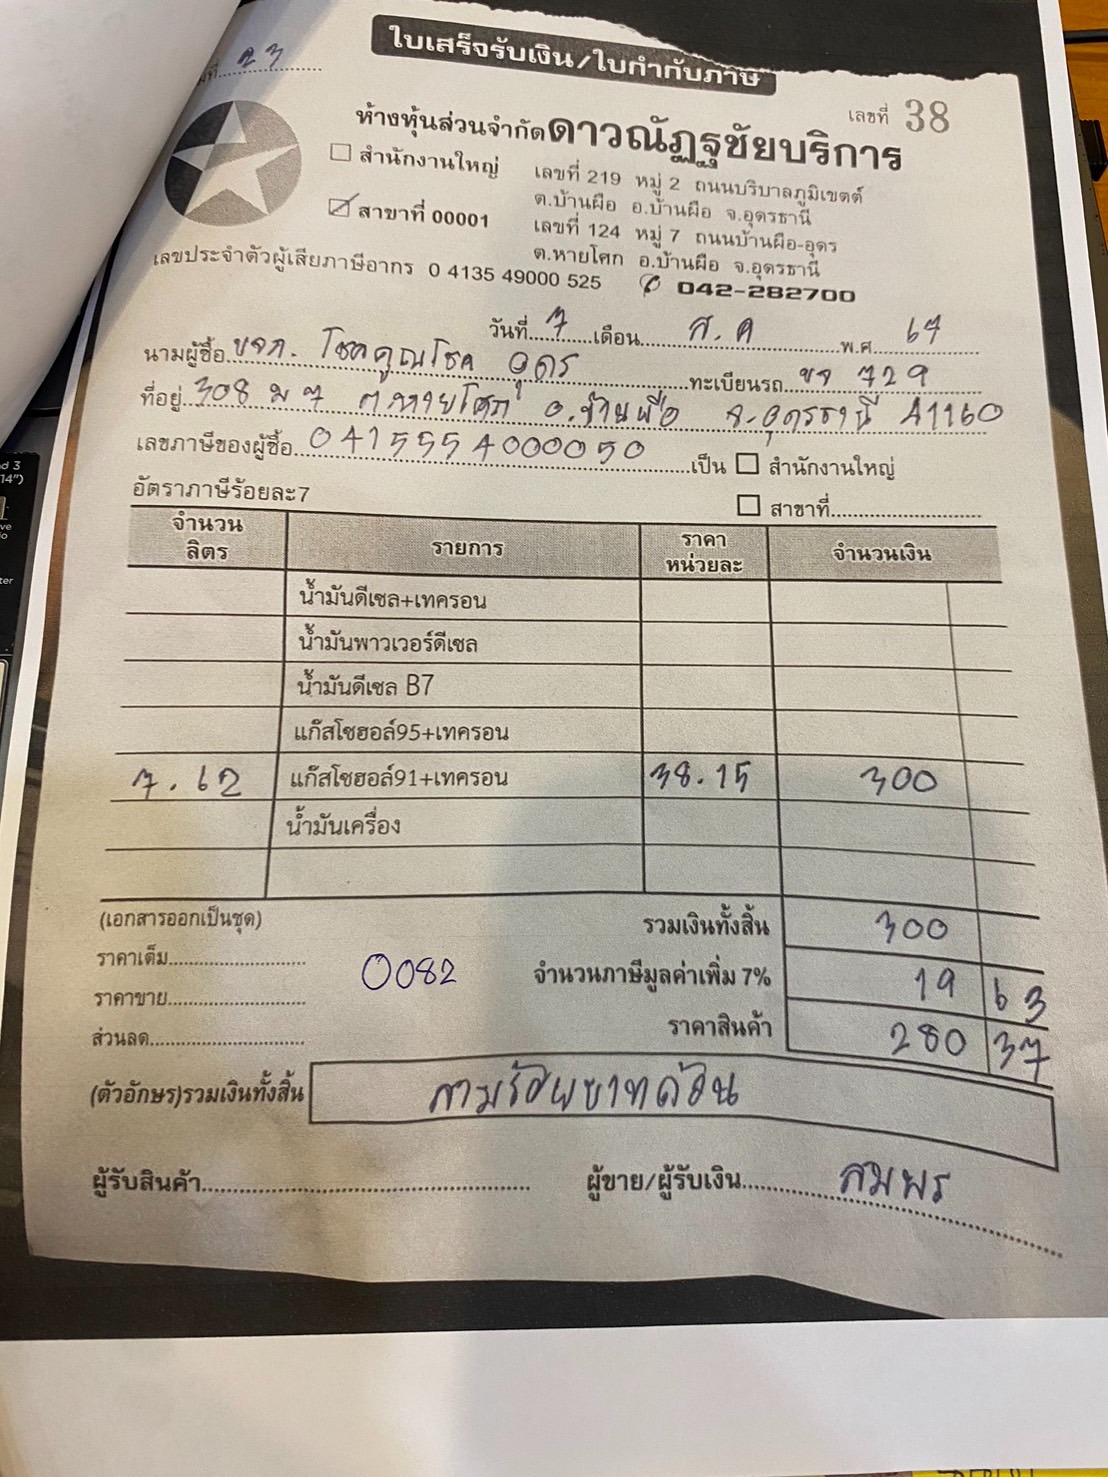 ใบเสร็จรับเงิน/ใบกำกับภาษี
ที่ 23
เลขที่ 38
ห้างหุ้นส่วนจำกัดดาวณัฏฐชัยบริการ
☐ สำนักงานใหญ่ เลขที่ 219 หมู่ 2 ถนนบริบาลภูมิเขตต์
ต.บ้านผือ อ.บ้านผือ จ.อุดรธานี
☑ สาขาที่ 00001 เลขที่ 124 หมู่ 7 ถนนบ้านผือ-อุดร
ต.หายโศก อ.บ้านผือ จ.อุดรธานี
เลขประจำตัวผู้เสียภาษีอากร 0 4135 49000 525 ✆ 042-282700
วันที่ 7 เดือน ส.ค พ.ศ. 67
นามผู้ซื้อ บจก. โชคคูณโชค อุดร ทะเบียนรถ บจ 729
ที่อยู่ 308 ม 7 ต.หายโศก อ.บ้านผือ จ.อุดรธานี 41160
เลขภาษีของผู้ซื้อ 0415554000050 เป็น ☐ สำนักงานใหญ่
อัตราภาษีร้อยละ7 ☐ สาขาที่
จำนวนลิตร รายการ ราคาหน่วยละ จำนวนเงิน
น้ำมันดีเซล+เทครอน
น้ำมันพาวเวอร์ดีเซล
น้ำมันดีเซล B7
แก๊สโซฮอล์95+เทครอน
7.62 แก๊สโซฮอล์91+เทครอน 38.15 300
น้ำมันเครื่อง
(เอกสารออกเป็นชุด) รวมเงินทั้งสิ้น 300
ราคาเต็ม
0082 จำนวนภาษีมูลค่าเพิ่ม 7% 19 63
ราคาขาย
ราคาสินค้า 280 37
ส่วนลด
(ตัวอักษร)รวมเงินทั้งสิ้น สามร้อยบาทถ้วน
ผู้รับสินค้า ผู้ขาย/ผู้รับเงิน สมพร